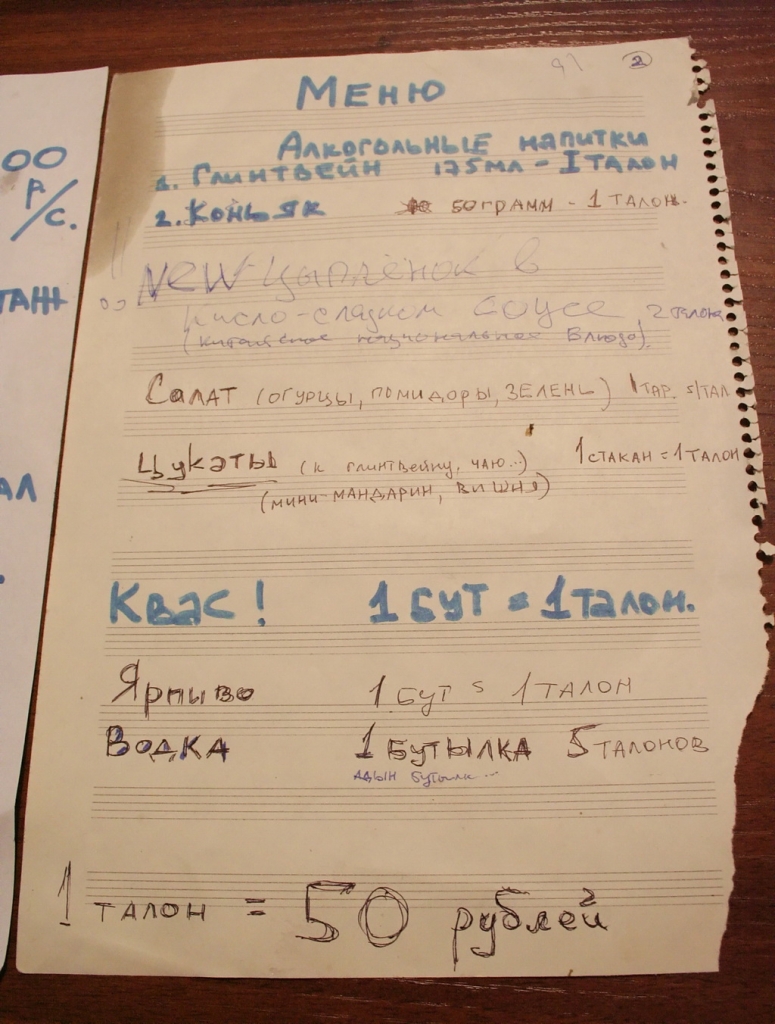 00
р/с.
АЛ
91 2
Меню
Алкогольные напитки
1. Глинтвейн 175мл - 1 талон
2. Коньяк 50 грамм - 1 талон.
NEW Цыплёнок в
кисло-сладком соусе 2 талона
(китайское национальное блюдо).
Салат (огурцы, помидоры, зелень) 1 тар. = 1 тал
Цукаты (к глинтвейну, чаю...) 1 стакан = 1 талон
(мини-мандарин, вишня)
Квас! 1 бут = 1 талон.
Ярпиво 1 бут = 1 талон
Водка 1 бутылка 5 талонов
адын бутылк...
1 талон = 50 рублей